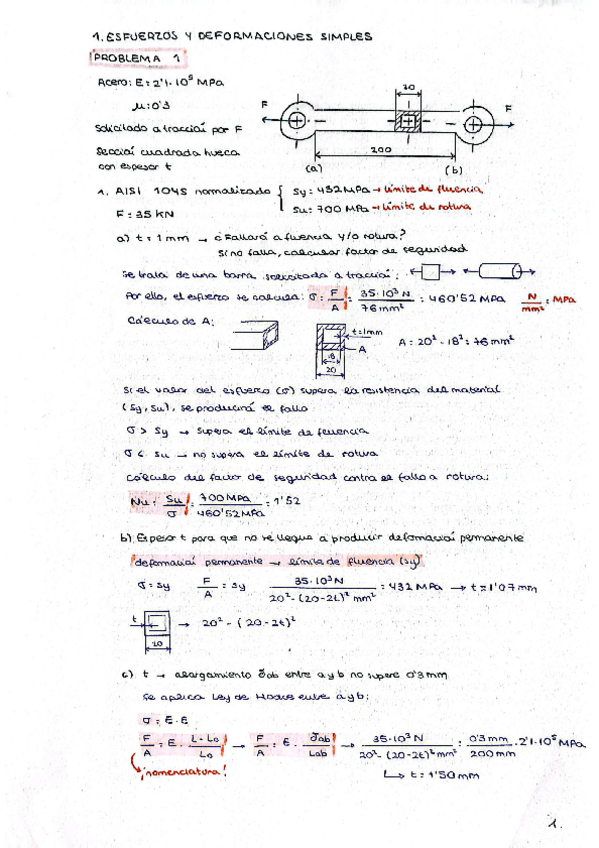 1. ESFUERZOS Y DEFORMACIONES SIMPLES
PROBLEMA 1
Acero: E = 2'1·10⁵ MPa
μ = 0'3
Solicitado a tracción por F
Sección cuadrada hueca
con espesor t
F
20
F
200
(a)
(b)
1. AISI 1045 normalizado { Sy: 432 MPa → Límite de fluencia
Su: 700 MPa → Límite de rotura
F = 35 KN
a) t = 1 mm → ¿Fallará a fluencia y/o rotura?
Si no falla, calcular factor de seguridad
Se trata de una barra solicitada a tracción:
Por ello, el esfuerzo se calcula: σ = F/A = 35·10³ N / 76 mm² = 460'52 MPa N/mm² = MPa
Cálculo de A:
t=1mm
A
18
20
A = 20² - 18² = 76 mm²
Si el valor del esfuerzo (σ) supera la resistencia del material
(Sy, Su), se producirá el fallo
σ > Sy → supera el límite de fluencia
σ < Su → no supera el límite de rotura
Cálculo del factor de seguridad contra el fallo a rotura:
Nu = Su/σ = 700 MPa / 460'52 MPa = 1'52
b) Espesor t para que no se llegue a producir deformación permanente
deformación permanente → límite de fluencia (Sy)
σ = Sy F/A = Sy 35·10³ N / 20² - (20-2t)² mm² = 432 MPa → t = 1'07 mm
t
20
→ 20² - (20-2t)²
c) t → alargamiento δab entre a y b no supere 0'3 mm
Se aplica Ley de Hooke entre a y b:
σ = E·ε
F/A = E · L-Lo/Lo → F/A = E · δab/Lab → 35·10³ N / 20² - (20-2t)² mm² = 0'3 mm / 200 mm · 2'1·10⁵ MPa
¡nomenclatura!
↳ t = 1'50 mm
1.